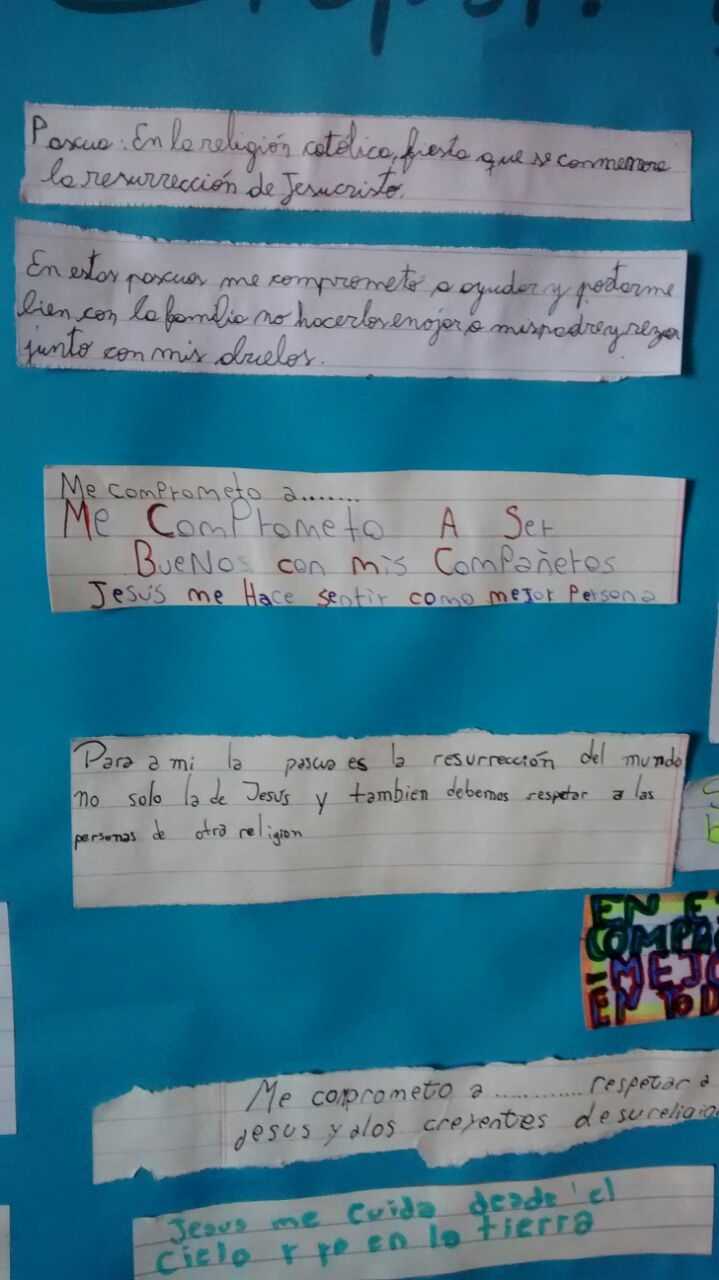 Pascua: En la religión católica, fiesta que se conmemora
la resurrección de Jesucristo.
En estas pascuas me comprometo a ayudar y portarme
bien con la familia no hacerlos enojar a mis padre y rezar
junto con mis abuelos.
Me comprometo a.......
Me Comprometo A Ser
BueNos con mis Compañeros
Jesús me Hace sentir como mejor Persona
Para a mi la pascua es la resurrección del mundo
no solo la de Jesus y tambien debemos respetar a las
personas de otra religion
EN E
COMPR
-MEJO
EN TOD
Me comprometo a ........... respetar a
Jesus y alos creyentes de su religio
Jesus me cuida desde el
cielo y yo en la tierra